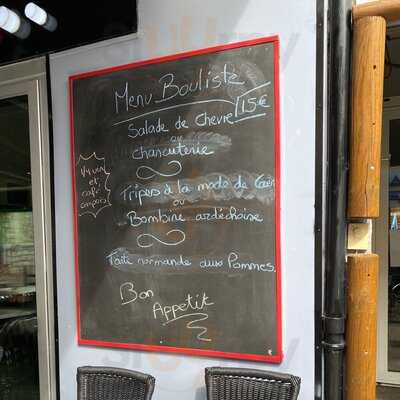 Menu Bouliste
15€
Salade de chevre
ou
charcuterie
Tripes à la mode de Caen
ou
Bombine ardéchoise
Tarte normande aux Pommes.
Bon
Appetit
et
café
compris